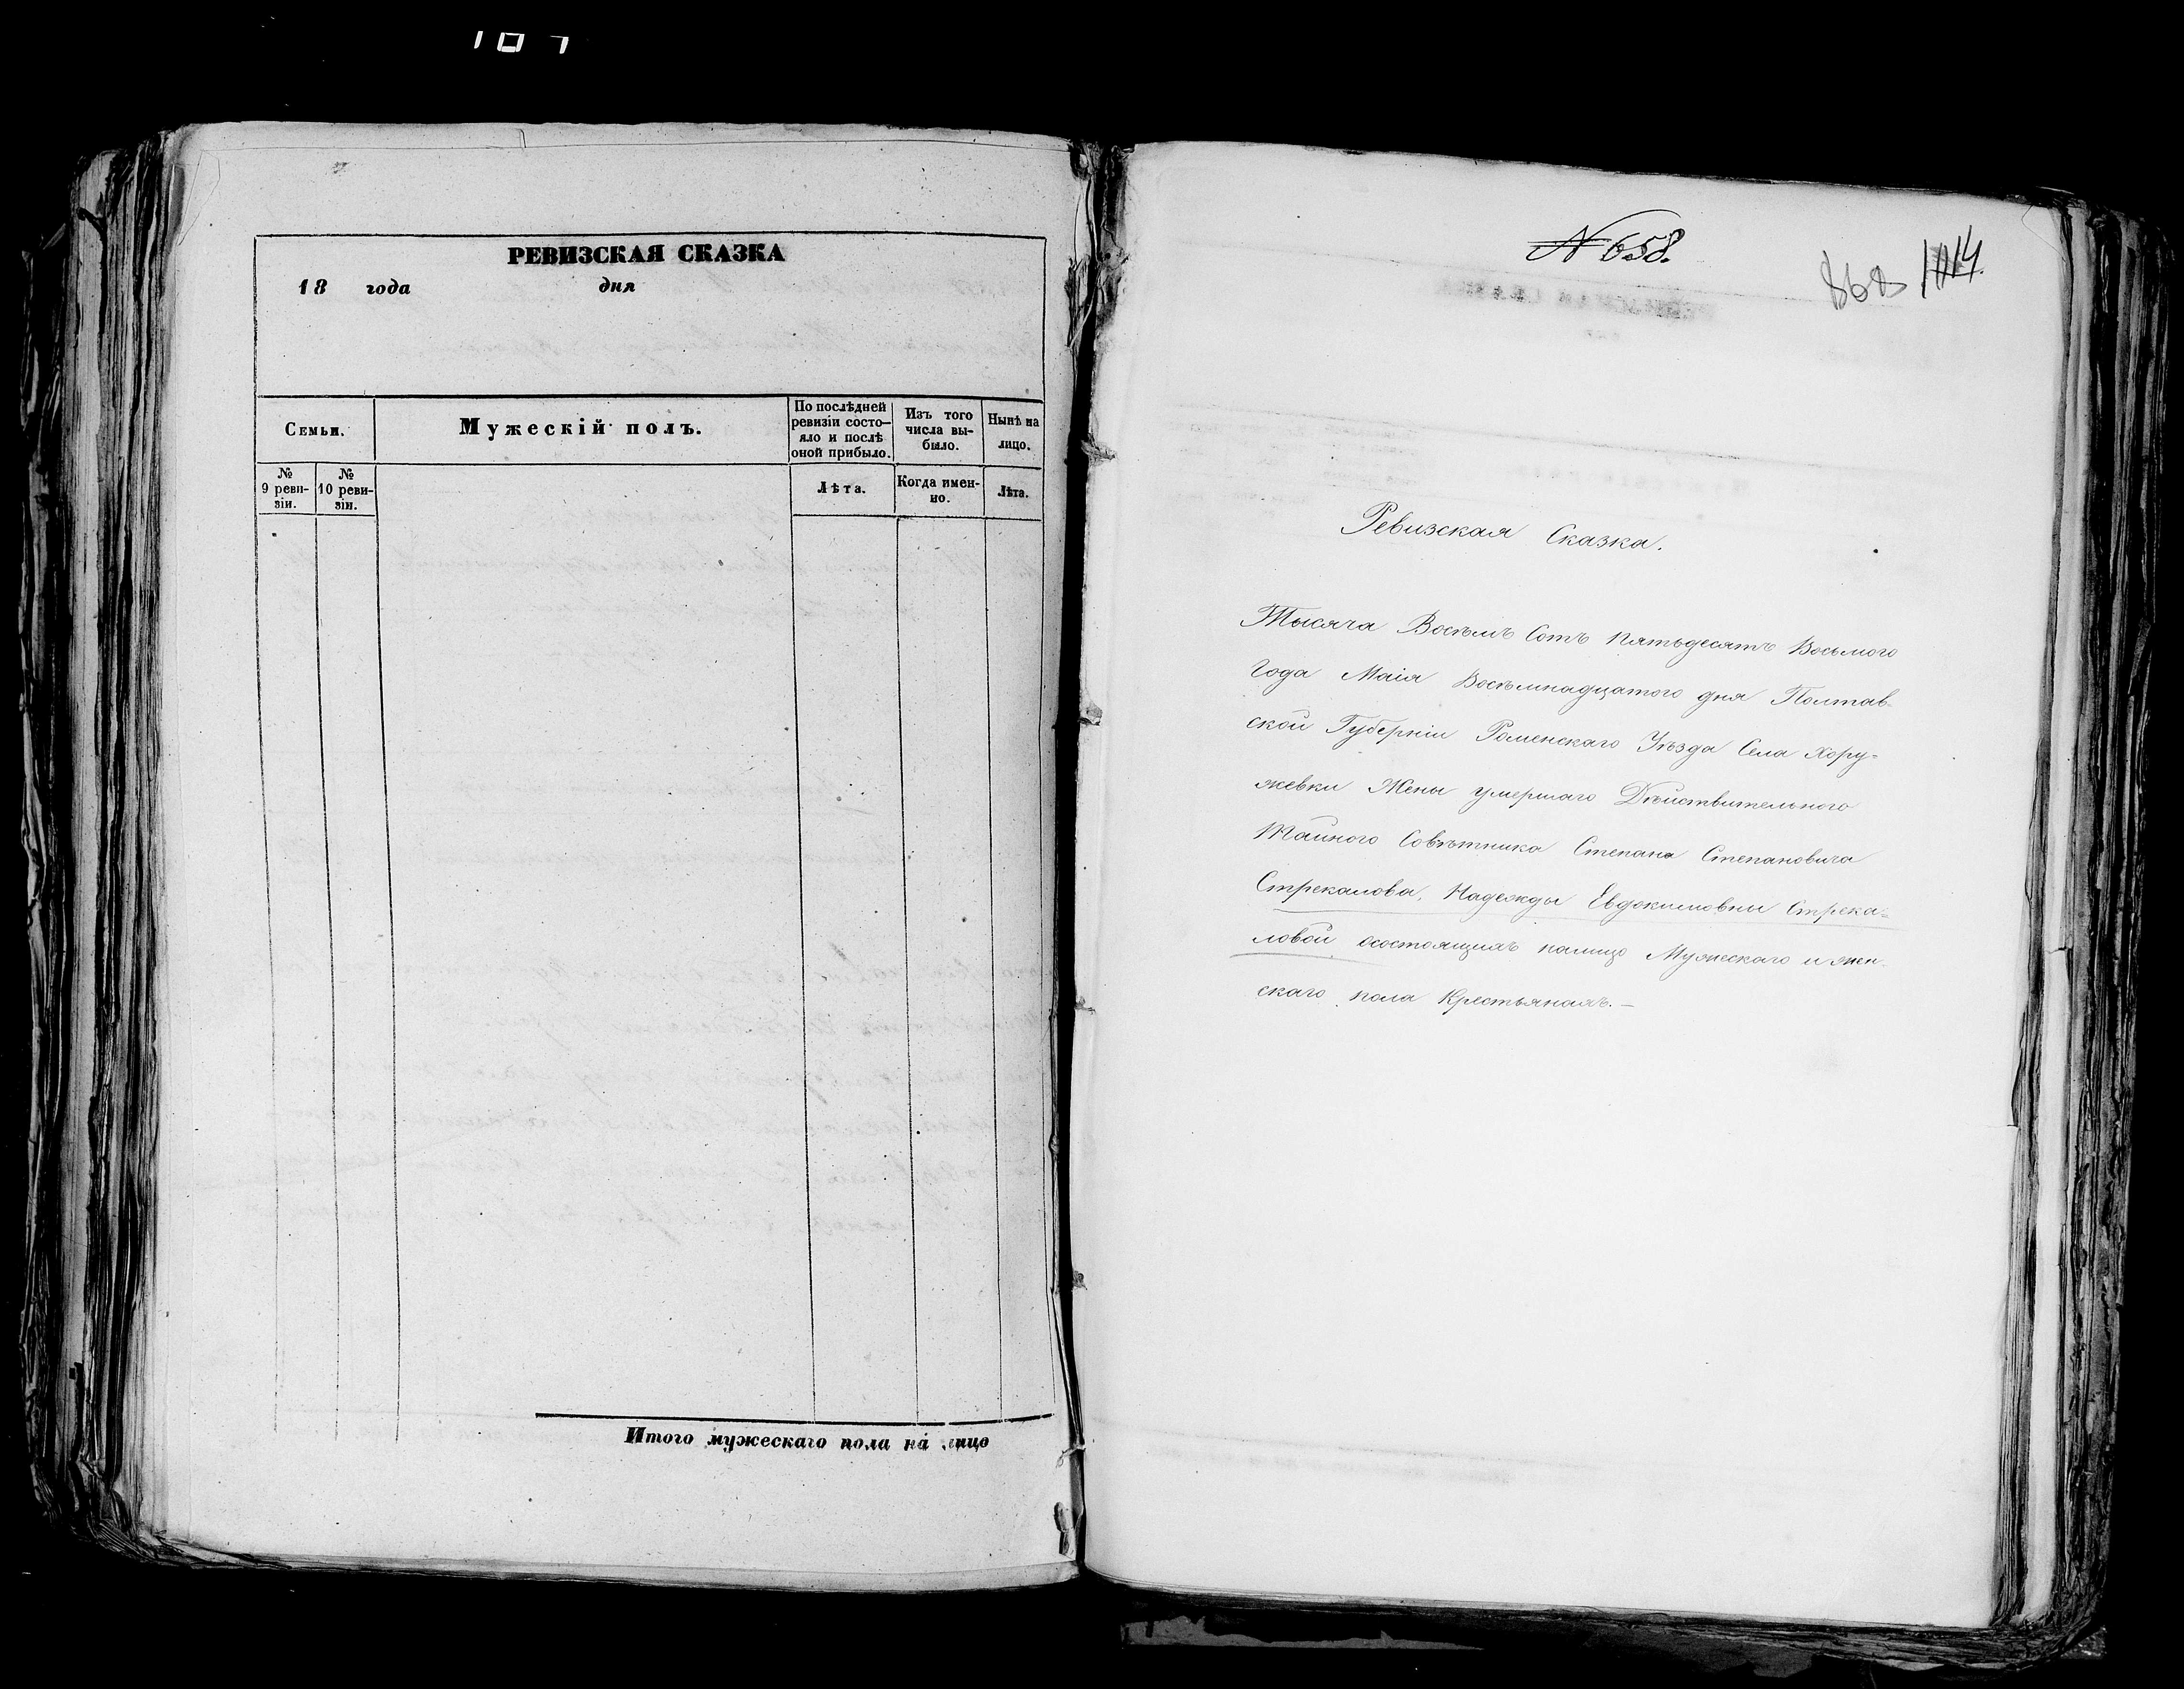 107
РЕВИЗСКАЯ СКАЗКА
18 года дня
Семьи.
Мужескій полъ.
По послѣдней
ревизіи состо-
яло и послѣ
оной прибыло.
Изъ того
числа вы-
было.
Нынѣ на
лицо.
№
9 реви-
зіи.
№
10 реви-
зіи.
Лѣта.
Когда имен-
но.
Лѣта.
Итого мужескаго пола на лицо
№ 658.
868
Ревизская Сказка.
Тысяча Восѣмъ Сотъ пятьдесятъ Восьмого
Года Маія Восѣмнадцатого дня Полтав-
ской Губерніи Роменскаго Уѣзда Села Хору-
жевки Жены умершаго Дѣйствительного
Тайного Совѣтника Степана Степановича
Стрекалова, Надежды Евдокимовны Стрека-
ловой осостоящихъ налицо Мужескаго и жен-
скаго пола Крестьянахъ.—